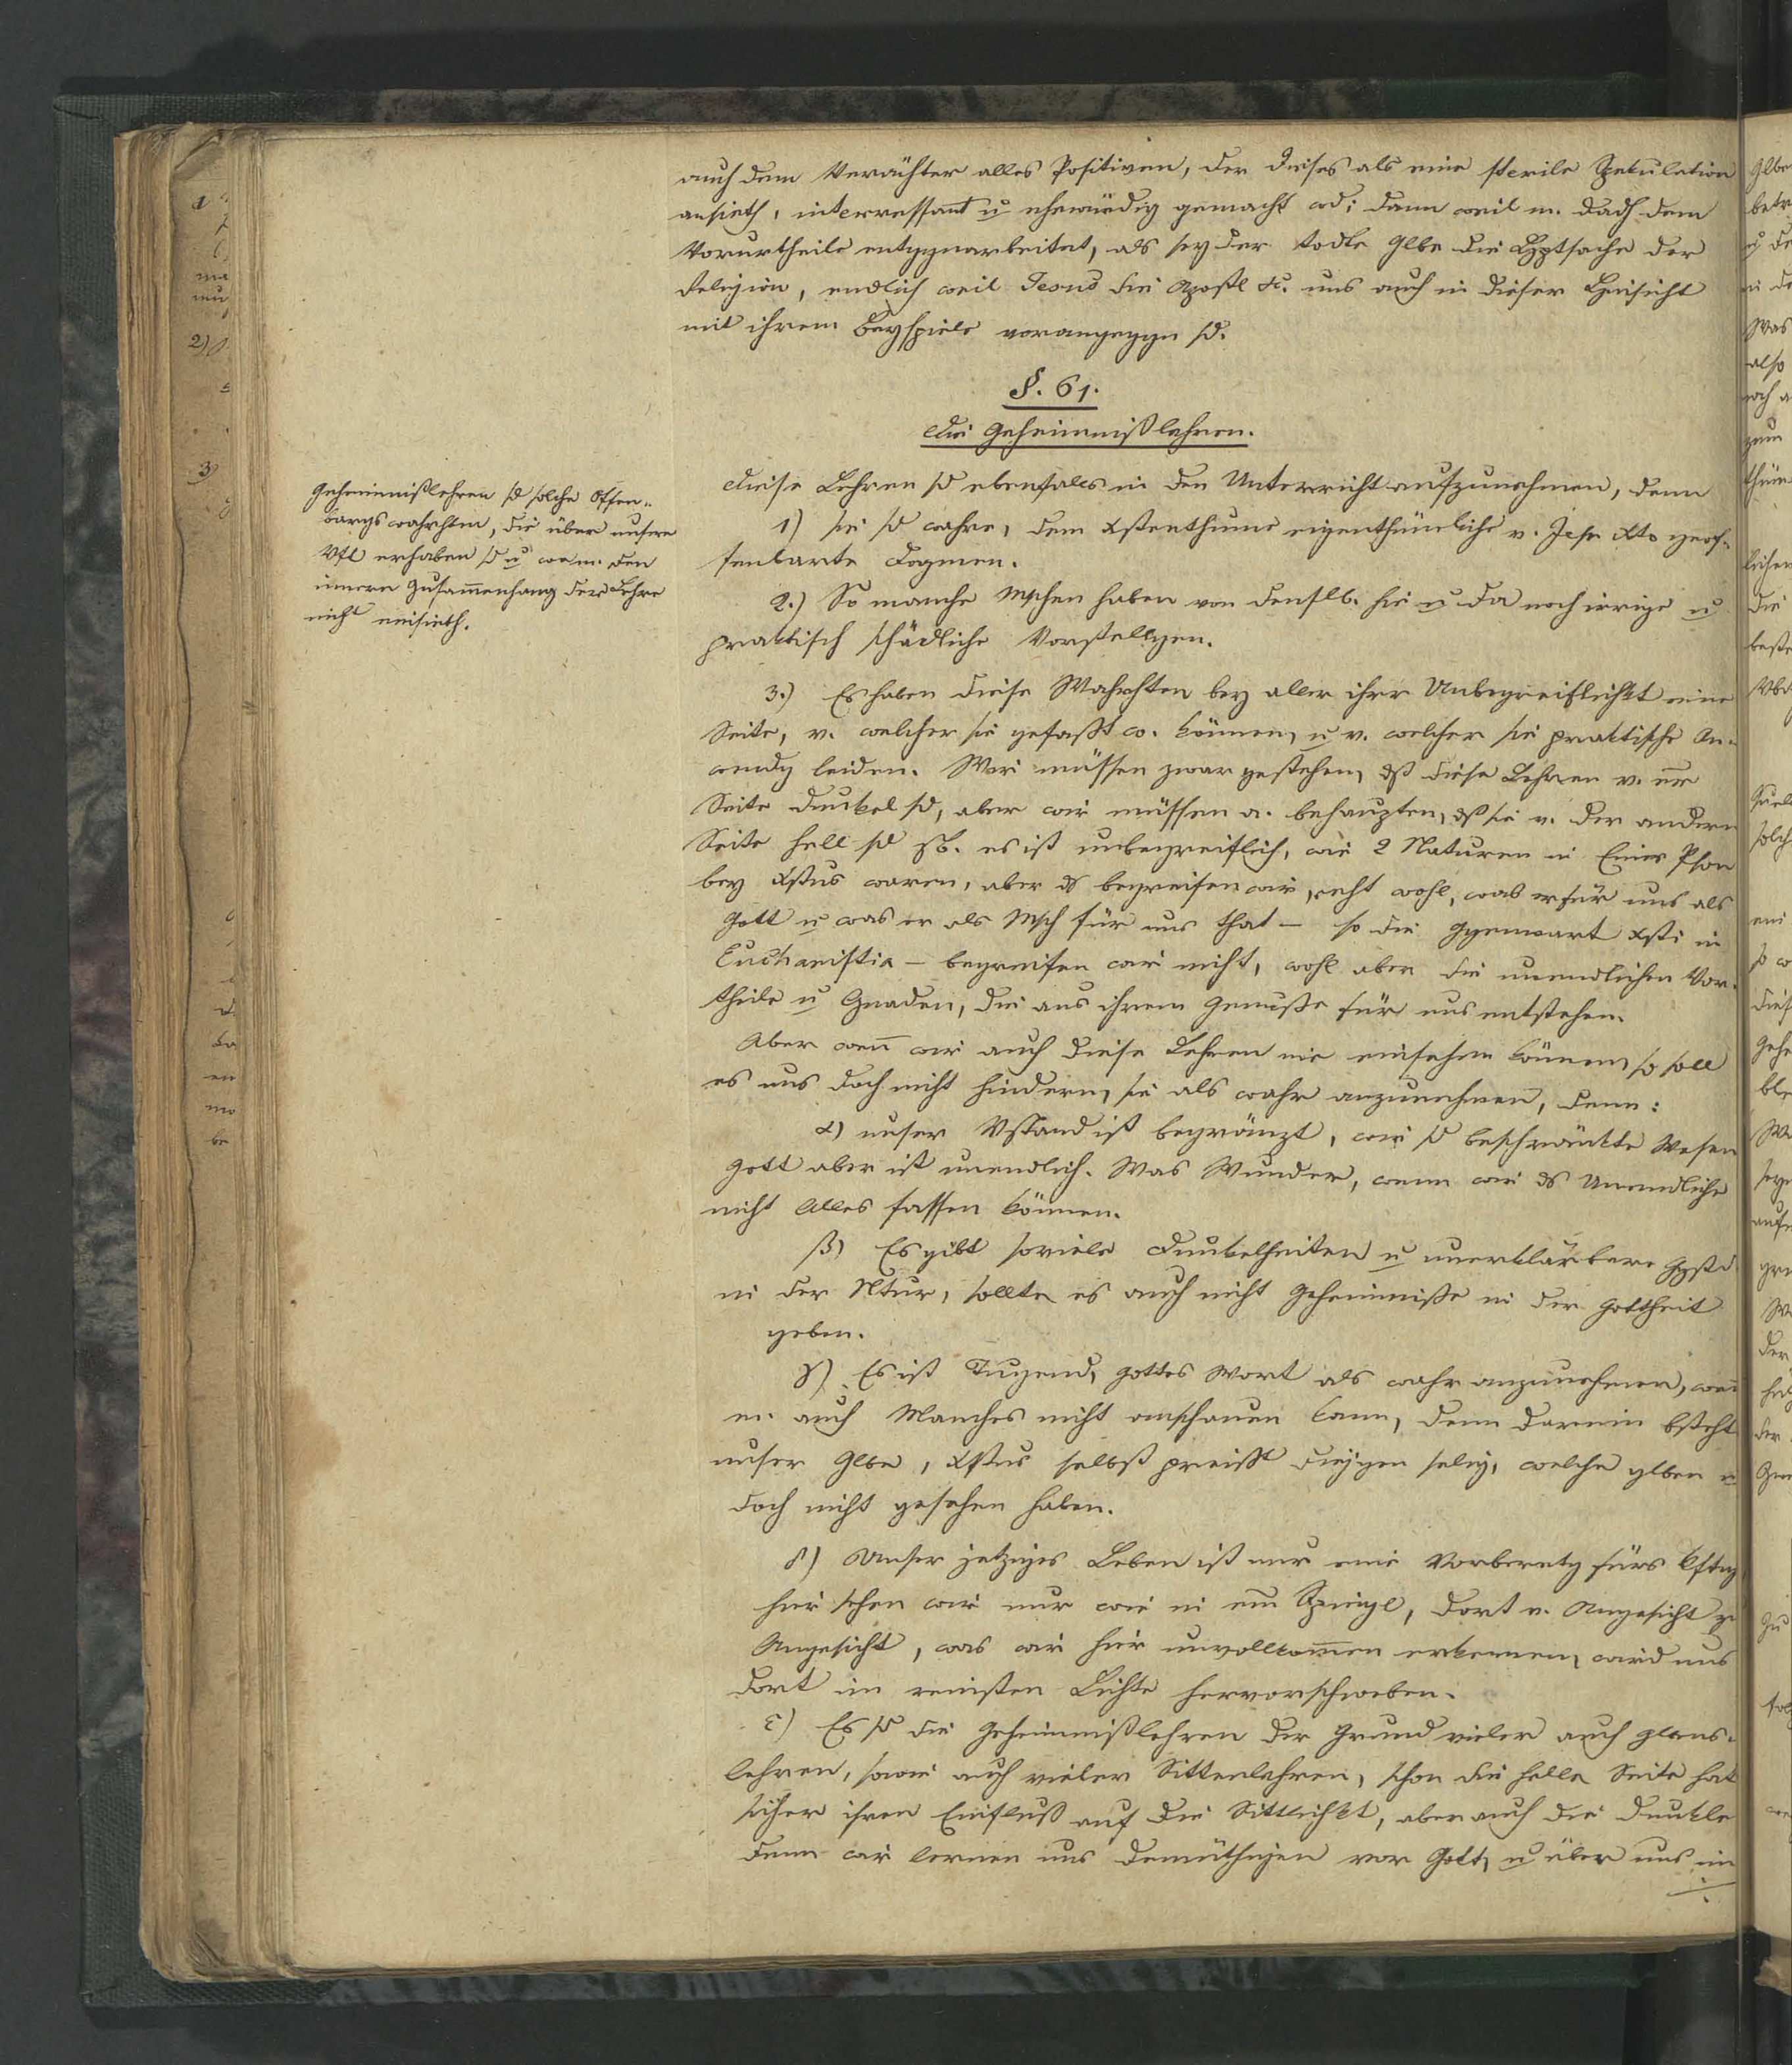 auch dem Verächter alles Positiven, der dieses als eine sterile Spekulation
ansieht, interressant u ehrwürdig gemacht wd; dann weil m. dadh dem
Vorurtheile entggnarbeitet, als sey der todte Glbe die Hptsache der
Religion, endlich weil Jesus die Apostl &c. uns auch in dieser Hinsicht
mit ihrem Beyspiele vorangeggn sd.
§. 61.
Die Geheimnißlehren.
Geheimnißlehren sd solche Offen-
bargswahrhten, die über unsere
Vft erhaben sd u wo m. den
innern Zusam̄enhang der Lehre
nicht einsieht.
Diese Lehren sd ebenfalls in den Unterricht aufzunehmen, denn
1) sie sd wahre, dem Xstenthume eigenthümliche v. Jesu Xto geof-
fenbarte Dogmen.
2.) So manche Mschen haben von denslb. hie u da noch irrige u
praktisch schädliche Vorstellgen.
3.) Es haben diese Wahrhten bey aller ihrer Unbegreiflichkt eine
Seite, v. welcher sie gefaßt w. können, u v. welcher sie praktische An-
wendg leiden. Wir müssen zwar gestehen, dß diese Lehren v. eir
Seite dunkel sd, aber wir müssen a. behaupten, dß sie v. der andern
Seite hell sd zB. es ist unbegreiflich, wie 2 Naturen in Einer Pson
bey Xstus waren, aber ds begreifen wir recht wohl, was er für uns als
Gott u was er als Msch für uns that – so die Ggenwart Xsti in
Eucharistia – begreifen wir nicht, wohl aber die unendlichen Vor-
theile u Gnaden, die aus ihrem Genuße für uns entstehen.
Aber wen̄ wir auch diese Lehren nie einsehen können, so soll
es uns doch nicht hindern, sie als wahr anzunehmen, denn:
α) unser Vstand ist begränzt, wir sd beschränkte Wesen
Gott aber ist unendlich. Was Wunder, wenn wir ds Unendliche
nicht Alles fassen können.
β) Es gibt soviele Dunkelheiten u unerklärbare Ggstd
in der Ntur, sollte es auch nicht Geheimniße in der Gottheit
geben.
γ) Es ist Tugend, Gottes Wort als wahr anzunehmen, wen̄
m. auch Manches nicht anschauen kann, denn darin bsteht
unser Glbe, Xstus selbst preißt diejgen selig, welche glben u
doch nicht gesehen haben.
δ) Unser jetziges Leben ist nur eine Vorberetg fürs kftg
hier sehen wir nur wie in em̄ Spiegl, dort v. Angesicht zu
Angesicht, was wir hier unvollkom̄en erkennen, wird uns
dort im reinsten Lichte hervorschweben.
ε) Es sd die Geheimnißlehren der Grund vieler auch Glbens-
lehren, sowie auch vieler Sittenlehren, schon die helle Seite hat
sicher ihren Einfluß auf die Sittlichkt, aber auch die dunkle
denn wir lernen uns demüthigen vor Gott, u über uns im